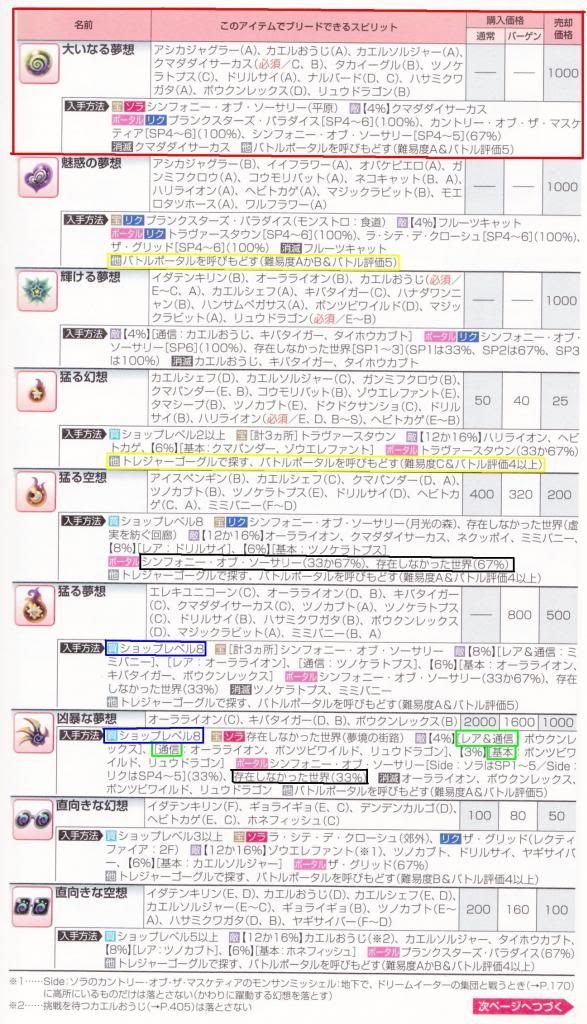 名前 このアイテムでブリードできるスピリット 購入価格 売却価格
通常 バーゲン
大いなる夢想
アシカジャグラー(A)、カエルおうじ(A)、カエルソルジャー(A)、
クマダダイサーカス(必須/C、B)、タカイイーグル(B)、ツノ
ケラトプス(C)、ドリルサイ(A)、ナルバード(D、C)、ハサミクワ
ガタ(A)、ボウクンレックス(D)、リュウドラゴン(B)
— — 1000
入手方法 宝 ソラ シンフォニー・オブ・ソーサリー(平原) 敵【4%】クマダダイサーカス
ポータル リク プランクスターズ・パラダイス[SP4～6](100%)、カントリー・オブ・ザ・マスケ
ティア[SP4～6](100%)、シンフォニー・オブ・ソーサリー[SP4～5](67%)
消滅 クマダダイサーカス 他 バトルポータルを呼びもどす(難易度A&バトル評価5)
魅惑の夢想
アシカジャグラー(B)、イイフラワー(A)、オバケピエロ(A)、ガ
ンミフクロウ(A)、コウモリバット(A)、ネコキャット(B、A)、
ハリライオン(A)、ヘビトカゲ(A)、マジックラビット(B)、モエ
ロタツホース(A)、ワルフラワー(A)
— — 1000
入手方法 宝 リク プランクスターズ・パラダイス(モンストロ：食道) 敵【4%】フルーツキャット
ポータル リク トラヴァースタウン[SP4～6](100%)、ラ・シテ・デ・クローシュ[SP4～6](100%)、
ザ・グリッド[SP4～6](100%) 消滅 フルーツキャット
他 バトルポータルを呼びもどす(難易度AかB&バトル評価5)
輝ける夢想
イダテンキリン(B)、オーラライオン(B)、カエルおうじ(必須/
E～C、A)、カエルシェフ(A)、キバタイガー(C)、ハナダワンニ
ャン(B)、ハンサムペガサス(A)、ポンツビワイルド(D)、マジッ
クラビット(A)、リュウドラゴン(必須/E～B)
— — 1000
入手方法 敵【4%】[通信：カエルおうじ、キバタイガー、タイホウカブト] ポータル リク シンフォニー・オブ・
ソーサリー[SP6](100%)、存在しなかった世界[SP1～3](SP1は33%、SP2は67%、SP3
は100%) 消滅 カエルおうじ、キバタイガー、タイホウカブト
猛る幻想
カエルシェフ(D)、カエルソルジャー(C)、ガンミフクロウ(B)、
クマパンダー(E、B)、コウモリバット(B)、ゾウエレファント(E)、
タマシープ(B)、ツノカブト(E)、ドクドクサンショ(C)、ドリル
サイ(B)、ハリライオン(必須/E、D、B～S)、ヘビトカゲ(E～B)
50 40 25
入手方法 買 ショップレベル2以上 宝 [計3ヵ所]トラヴァースタウン 敵【12か16%】ハリライオン、ヘビ
トカゲ、【6%】[基本：クマパンダー、ゾウエレファント] ポータル トラヴァースタウン(33か67%)
他 トレジャーゴーグルで探す、バトルポータルを呼びもどす(難易度C&バトル評価4以上)
猛る空想
アイスペンギン(B)、カエルシェフ(C)、クマパンダー(D、A)、
ツノカブト(B)、ツノケラトプス(E)、ドリルサイ(D)、ヘビトカ
ゲ(C、A)、ミミバニー(F～D)
400 320 200
入手方法 買 ショップレベル8 宝 リク シンフォニー・オブ・ソーサリー(月光の森)、存在しなかった世界(虚
実を紡ぐ回廊) 敵【12か16%】オーラライオン、クマダダイサーカス、ネクッポイ、ミミバニー、
【8%】[レア：ドリルサイ]、【6%】[基本：ツノケラトプス]
ポータル シンフォニー・オブ・ソーサリー(33か67%)、存在しなかった世界(67%)
他 トレジャーゴーグルで探す、バトルポータルを呼びもどす(難易度A&バトル評価4以上)
猛る夢想
エレキユニコーン(C)、オーラライオン(D、B)、キバタイガー
(C)、クマダダイサーカス(C)、ツノカブト(A)、ツノケラトプス
(C)、ドリルサイ(B)、ハサミクワガタ(B)、ボウクンレックス
(D)、マジックラビット(A)、ミミバニー(B、A)
— 800 500
入手方法 買 ショップレベル8 宝 [計3ヵ所]シンフォニー・オブ・ソーサリー 敵【8%】[レア&通信：ミ
ミバニー]、[レア：オーラライオン]、[通信：ツノケラトプス]、【6%】[基本：オーラライオン、
キバタイガー、ボウクンレックス] ポータル シンフォニー・オブ・ソーサリー(33か67%)、存在
しなかった世界(33%) 消滅 ツノケラトプス、ミミバニー
他 トレジャーゴーグルで探す、バトルポータルを呼びもどす(難易度A&バトル評価5)
凶暴な夢想
オーラライオン(C)、キバタイガー(D、B)、ボウクンレックス(B)
2000 1600 1000
入手方法 買 ショップレベル8 宝 ソラ 存在しなかった世界(夢境の街路) 敵【4%】[レア&通信：ボウクンレ
ックス]、[通信：オーラライオン、ポンツビワイルド、リュウドラゴン]、【3%】[基本：ポンツビワ
イルド、リュウドラゴン] ポータル シンフォニー・オブ・ソーサリー[Side：ソラはSP1～5／Side：
リクはSP4～5](33%)、存在しなかった世界(33%) 消滅 オーラライオン、ボウクンレックス、
ポンツビワイルド、リュウドラゴン 他 バトルポータルを呼びもどす(難易度A&バトル評価5)
直向きな幻想
イダテンキリン(F)、ギョライギョ(E、C)、デンデンカルゴ(D)、
ヘビトカゲ(E、C)、ホネフィッシュ(C)
100 80 50
入手方法 買 ショップレベル3以上 宝 ソラ ラ・シテ・デ・クローシュ(郊外)、リク ザ・グリッド(レクティ
ファイア：2F) 敵【12か16%】ゾウエレファント(※1)、ツノカブト、ドリルサイ、ヤギサイバ
ー、【6%】[基本：カエルソルジャー] ポータル ザ・グリッド(67%)
他 トレジャーゴーグルで探す、バトルポータルを呼びもどす(難易度B&バトル評価4以上)
直向きな空想
イダテンキリン(E、D)、カエルおうじ(D)、カエルシェフ(E、D)、
カエルソルジャー(E～C)、ギョライギョ(B)、ツノカブト(E～
A)、ハサミクワガタ(D、B)、ヤギサイバー(F～D)
200 160 100
入手方法 買 ショップレベル5以上 敵【12か16%】カエルおうじ(※2)、カエルソルジャー、タイホウカブト、
【8%】[レア：ツノカブト]、【6%】[基本：ホネフィッシュ] ポータル プランクスターズ・パラダイス(67%)
他 トレジャーゴーグルで探す、バトルポータルを呼びもどす(難易度AかB&バトル評価4以上)
※1……Side：ソラのカントリー・オブ・ザ・マスケティアのモンサンミッシェル：地下で、ドリームイーターの集団と戦うとき(→P.170)
に高所にいるものだけは落とさない(かわりに躍動する幻想を落とす)
※2……挑戦を待つカエルおうじ(→P.405)は落とさない
次ページへつづく